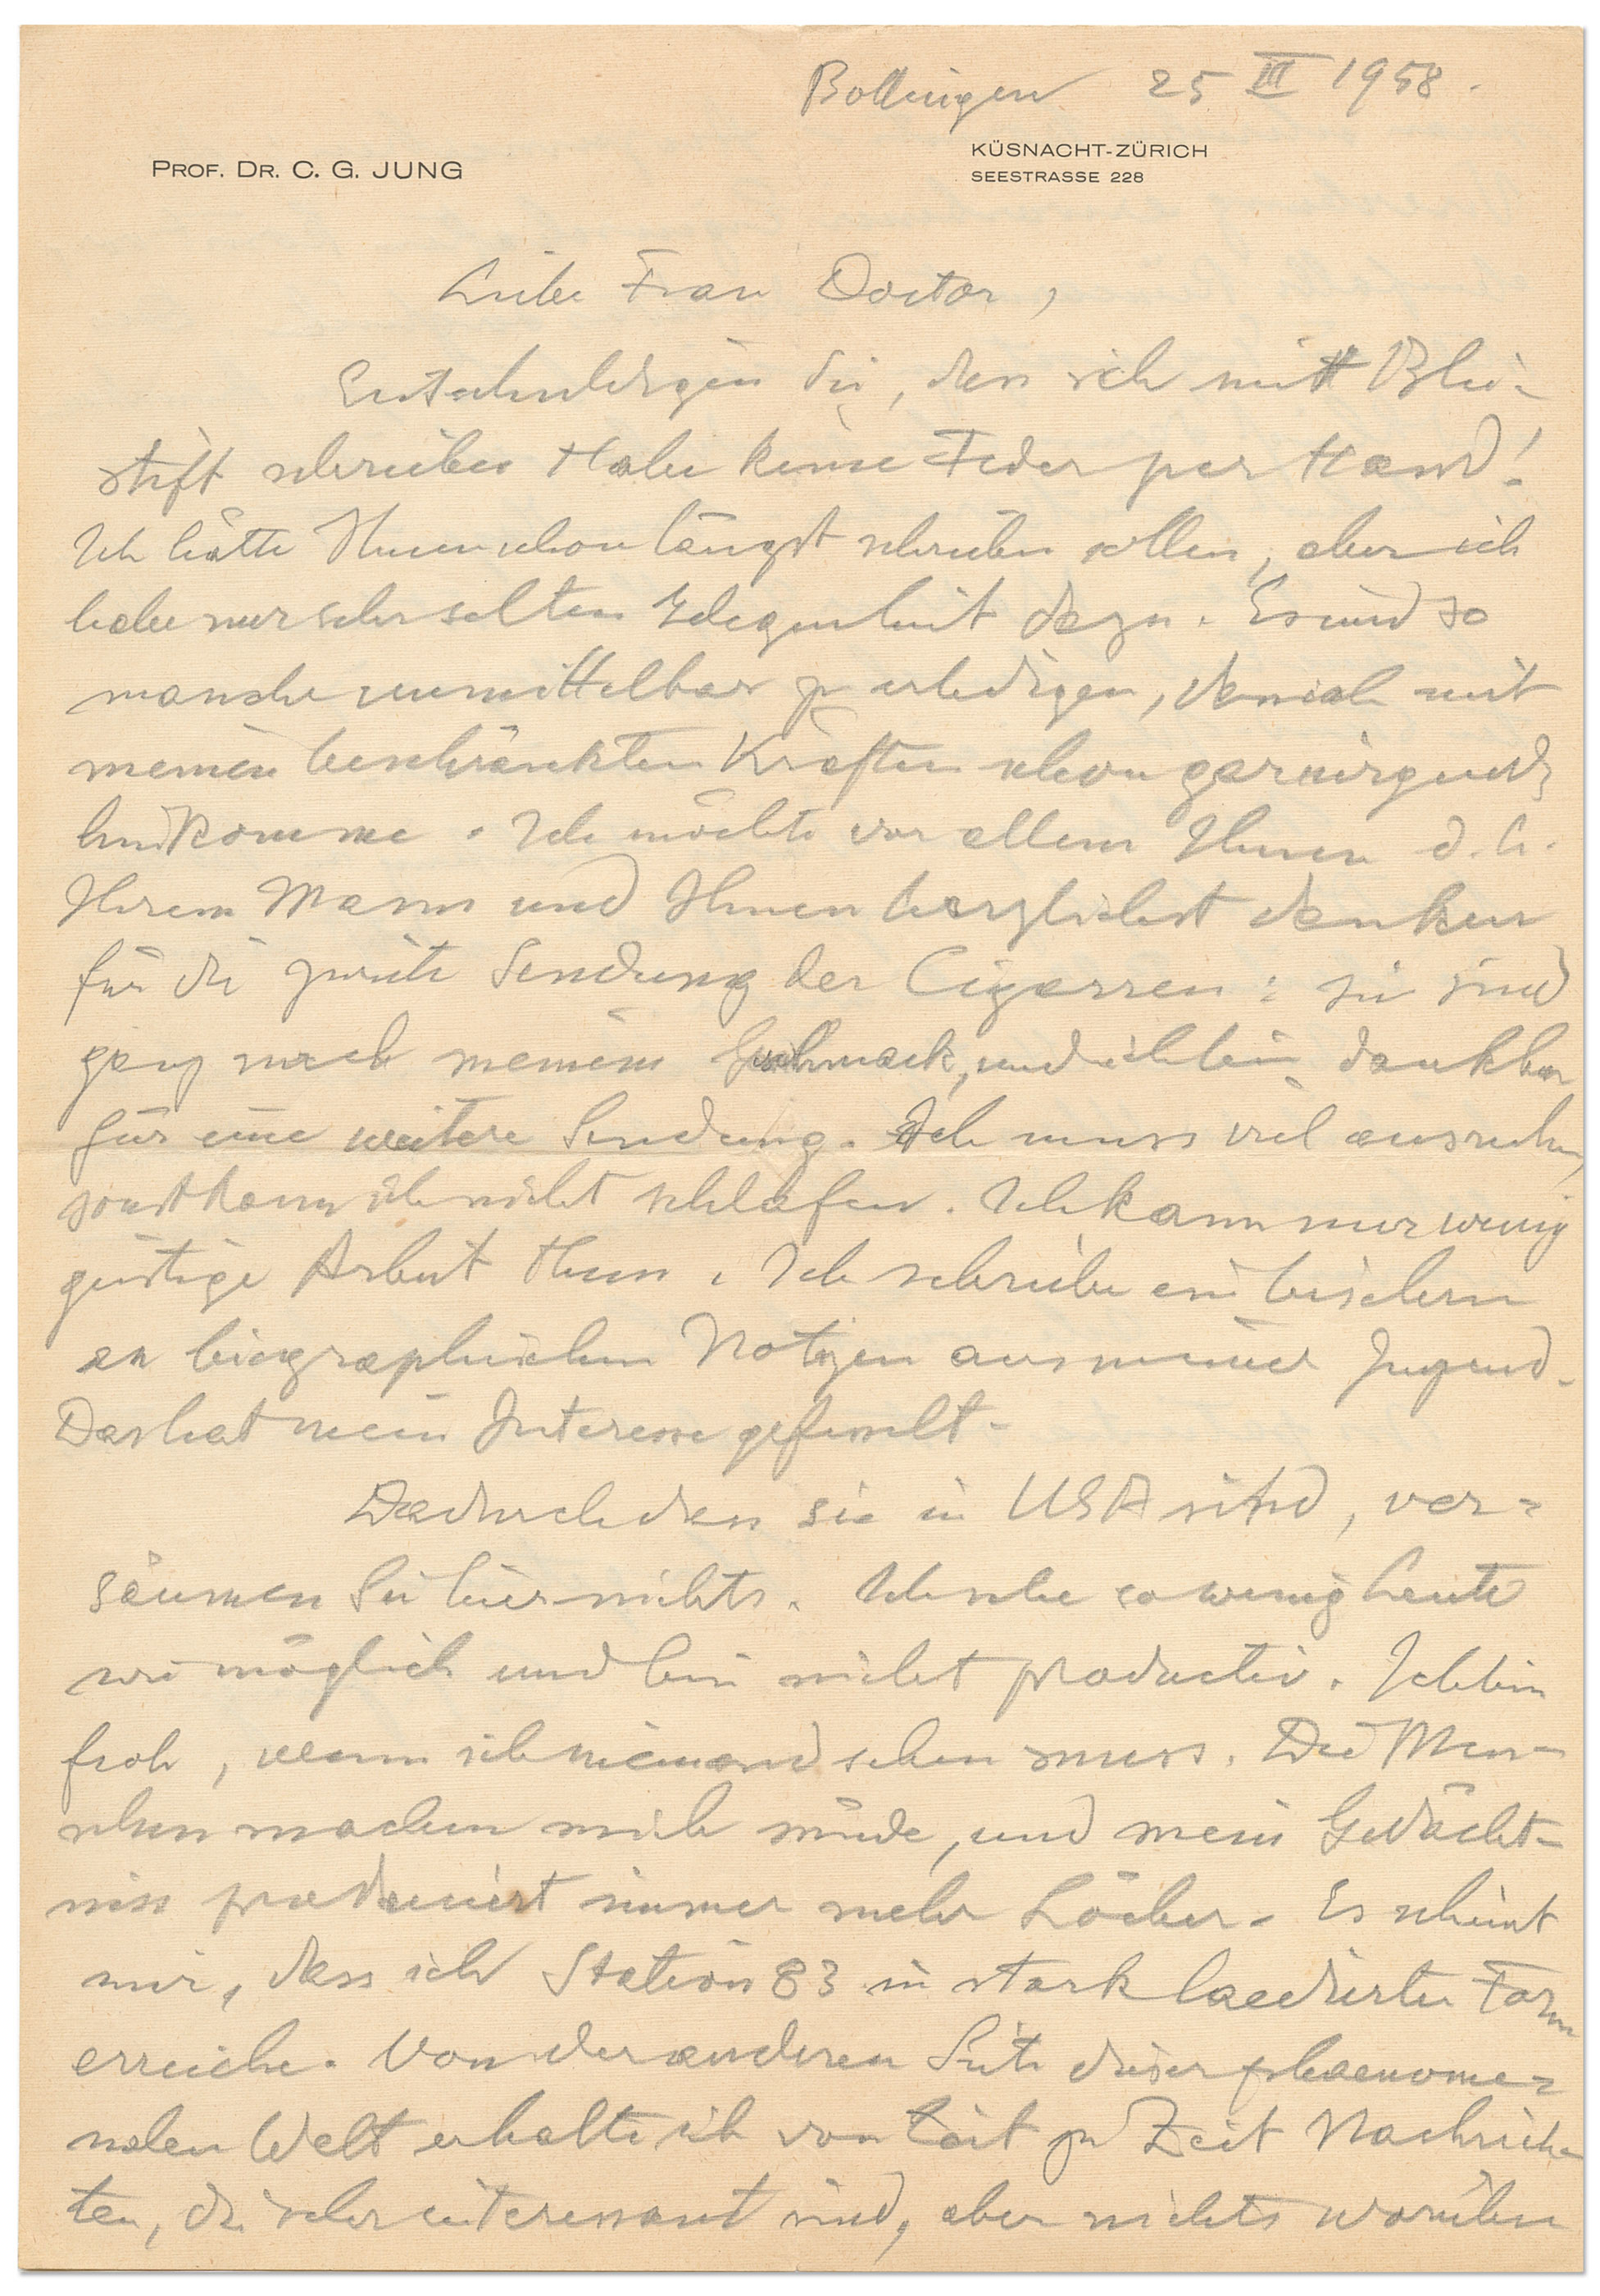 Bollingen 25 III 1958.
PROF. DR. C. G. JUNG
KÜSNACHT-ZÜRICH
SEESTRASSE 228
Liebe Frau Doctor,
Entschuldigen Sie, dass ich mit Blei-
stift schreibe. Habe keine Feder per Hand!
Ich hätte Ihnen schon längst schreiben sollen, aber ich
habe nur sehr selten Gelegenheit dazu. Es sind so
manche unmittelbar zu erledigen, dass ich mit
meinen beschränkten Kräften schon gar nirgends
hinkomme. Ich möchte vor allem Ihnen d. h.
Ihrem Mann und Ihnen herzlichst danken
für die zweite Sendung der Cigarren: sie sind
ganz nach meinem Geschmack, und ich bin dankbar
für eine weitere Sendung. Ich muss viel ausruhen,
sonst kann ich nicht schlafen. Ich kann nur wenig
geistige Arbeit thun. Ich schreibe ein bischen
an biographischen Notizen aus meiner Jugend.
Das hat mein Interesse gefesselt.
Dadurch dass sie in USA sind, ver-
säumen Sie hier nichts. Ich sehe so wenig Leute
wie möglich und bin nicht productiv. Ich bin
froh, wenn ich niemand sehen muss. Die Men-
schen machen mich müde, und mein Gedächt-
niss produciert immer mehr Löcher. Es scheint
mir, dass ich Station 83 in stark laedierter Form
erreiche. Von der anderen Seite dieser phaenome-
nalen Welt erhalte ich von Zeit zu Zeit Nachrich-
ten, die sehr interessant sind, aber nichts worüber